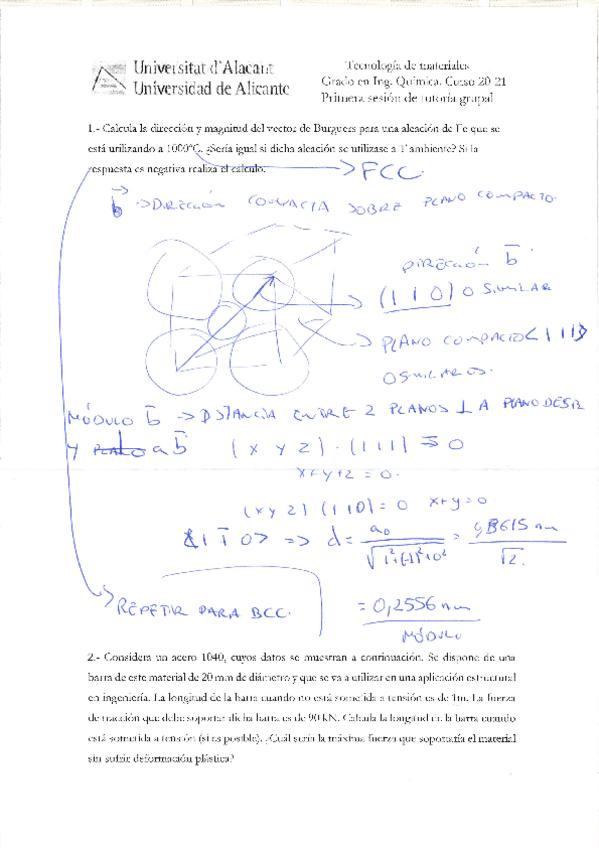 Universitat d'Alacant
Universidad de Alicante
Tecnología de materiales
Grado en Ing. Química. Curso 20-21
Primera sesión de tutoría grupal
1.- Calcula la dirección y magnitud del vector de Burguers para una aleación de Fe que se
está utilizando a 1000°C. ¿Sería igual si dicha aleación se utilizase a T ambiente? Si la
respuesta es negativa realiza el cálculo.
FCC.
b → DIRECCIÓN COMPACTA SOBRE PLANO COMPACTO.
DIRECCIÓN b.
(110) O SIMILAR
PLANO COMPACTO
MÓDULO b → DISTANCIA ENTRE 2 PLANOS ⊥ A PLANO DESLIZ
Y a b (x y z) · (111) = 0
x+y+z = 0.
(x y z) (110) = 0 x+y=0
<1 1̄ 0> => d = a₀ / √1²+(-1)²+0² = / √2.
= 0,2556 nm
MÓDULO
REPETIR PARA BCC.
2.- Considera un acero 1040, cuyos datos se muestran a continuación. Se dispone de una
barra de este material de 20 mm de diámetro y que se va a utilizar en una aplicación estructural
en ingeniería. La longitud de la barra cuando no está sometida a tensión es de 1m. La fuerza
de tracción que debe soportar dicha barra es de 90 kN. Calcula la longitud de la barra cuando
está sometida a tensión (si es posible). ¿Cuál sería la máxima fuerza que soportaría el material
sin sufrir deformación plástica?